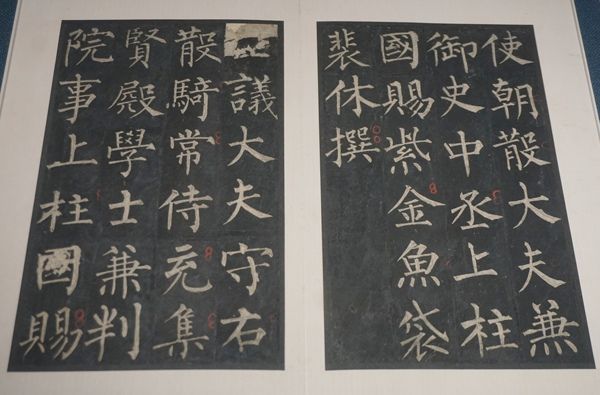 使朝散大夫兼
御史中丞上柱
國賜紫金魚袋
裴休撰
議大夫守右
散騎常侍充集
賢殿學士兼判
院事上柱國賜